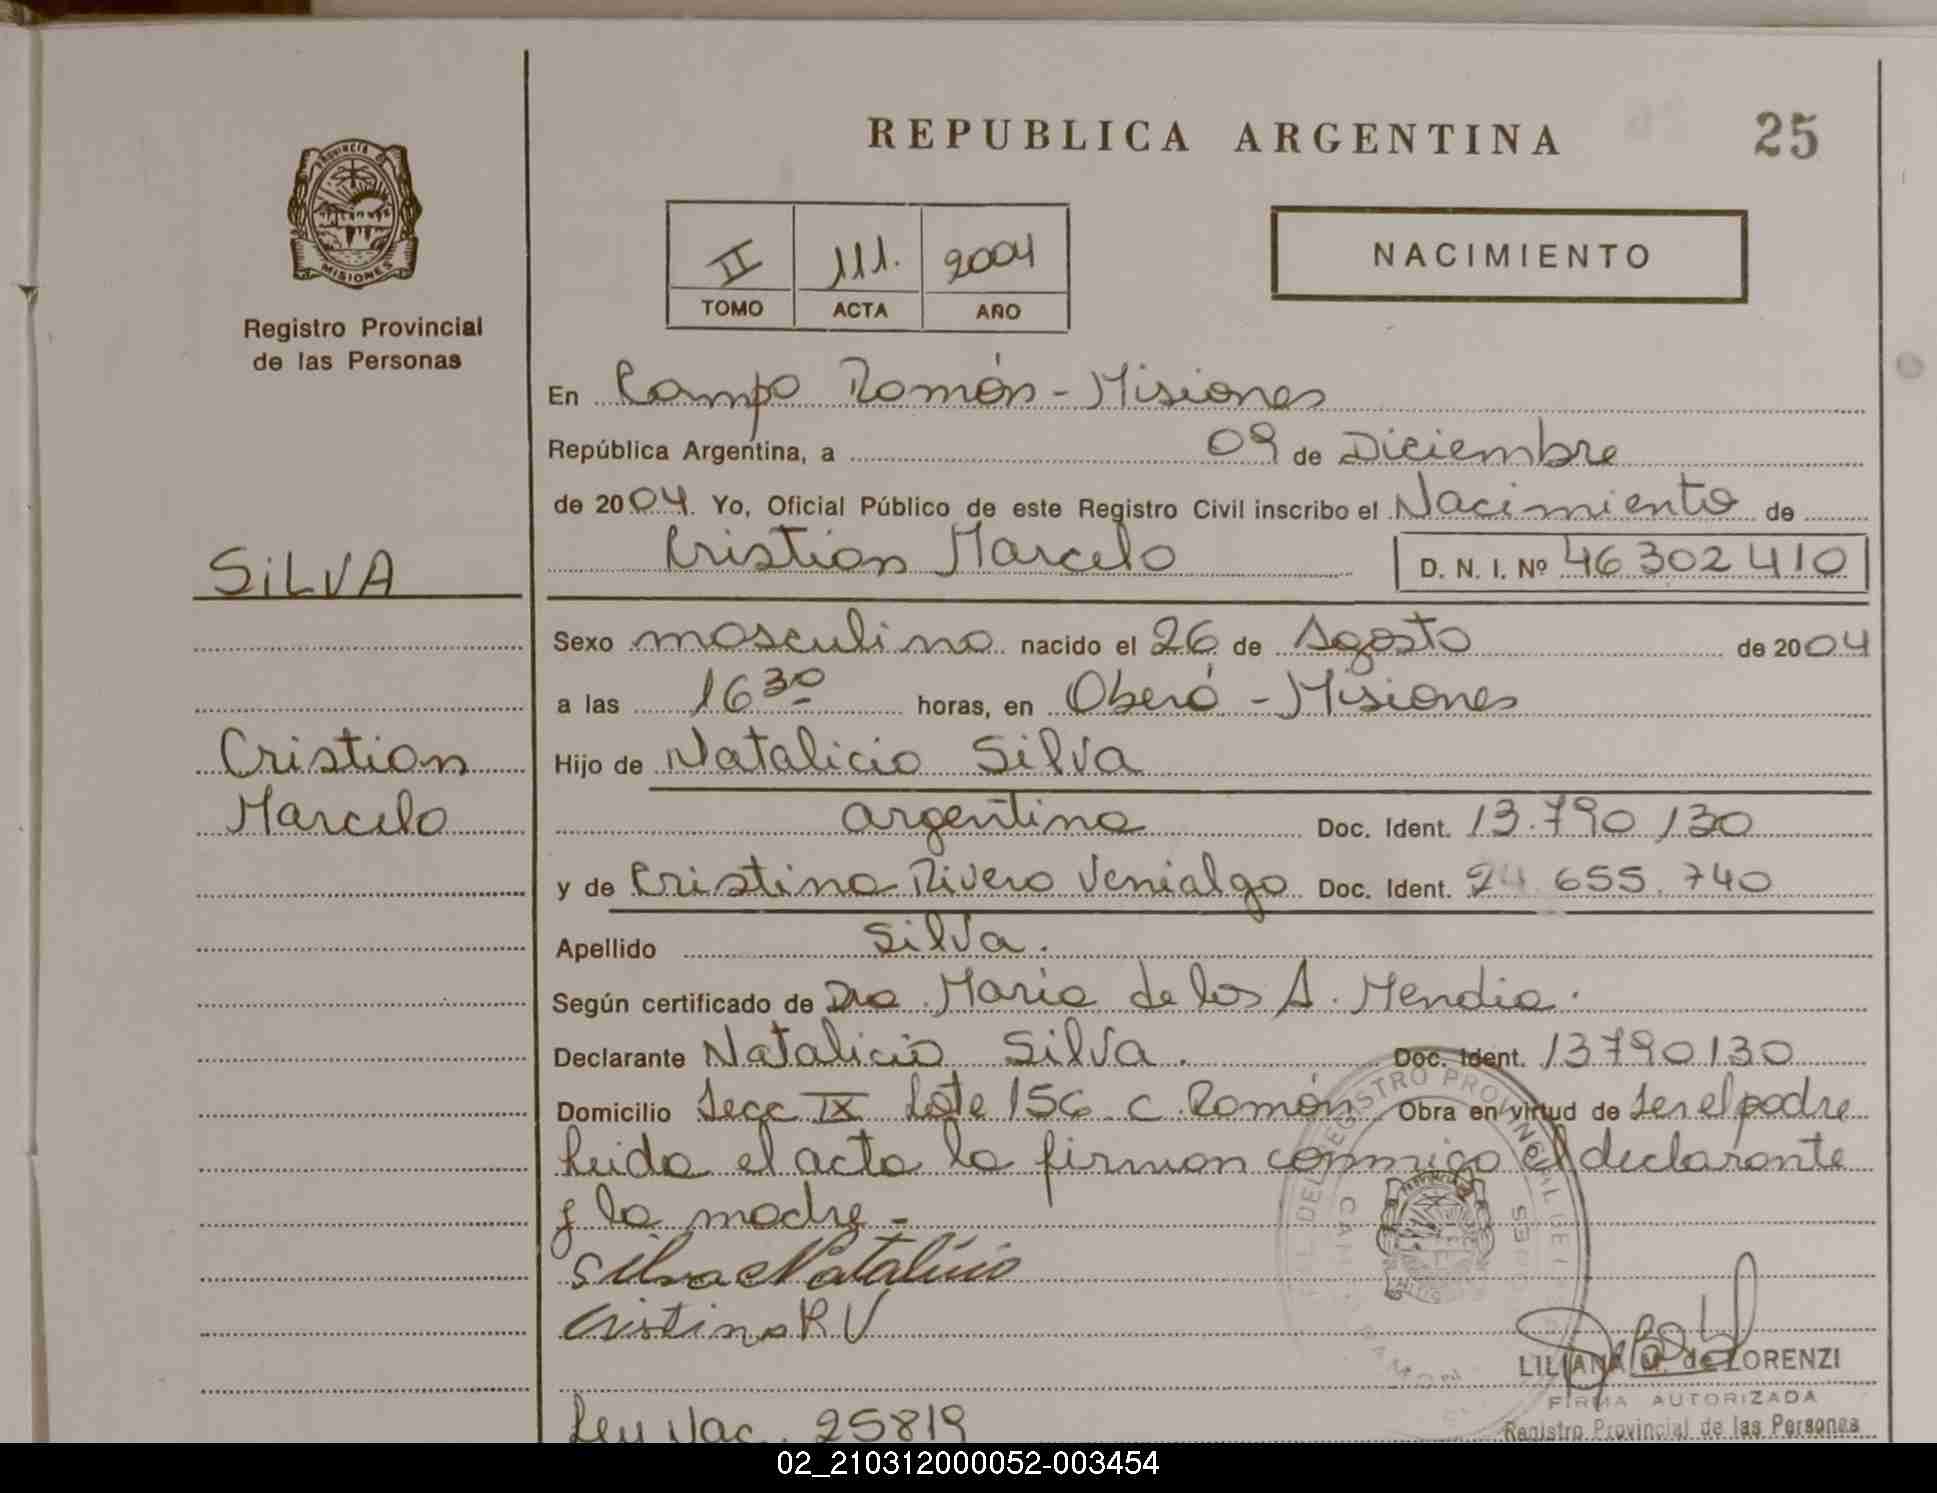 REPUBLICA ARGENTINA
25
PROVINCIA DE
MISIONES
Registro Provincial
de las Personas
II 111. 2004
TOMO ACTA AÑO
NACIMIENTO
En Campo Ramón - Misiones
República Argentina, a 09 de Diciembre
de 2004. Yo, Oficial Público de este Registro Civil inscribo el Nacimiento de
Cristian Marcelo D. N. I. Nº 46 302 410
SILVA
Sexo masculino nacido el 26 de Agosto de 2004
a las 16 30 horas, en Oberá - Misiones
Cristian
Marcelo
Hijo de Natalicio Silva
argentina Doc. Ident. 13.790 130
y de Cristina Rivero Venialgo Doc. Ident. 24 655.740
Apellido Silva.
Según certificado de Dra. Maria de los A. Mendia.
Declarante Natalicio Silva. Doc. Ident. 13790130
Domicilio Secc IX Lote 156 C. Ramón Obra en virtud de ser el padre
Leida el acta la firman conmigo el declarante
y la madre -
Silva Natalicio
Cristina R V
LILIANA M. de LORENZI
FIRMA AUTORIZADA
Registro Provincial de las Personas
Ley Nac. 25819
02_210312000052-003454